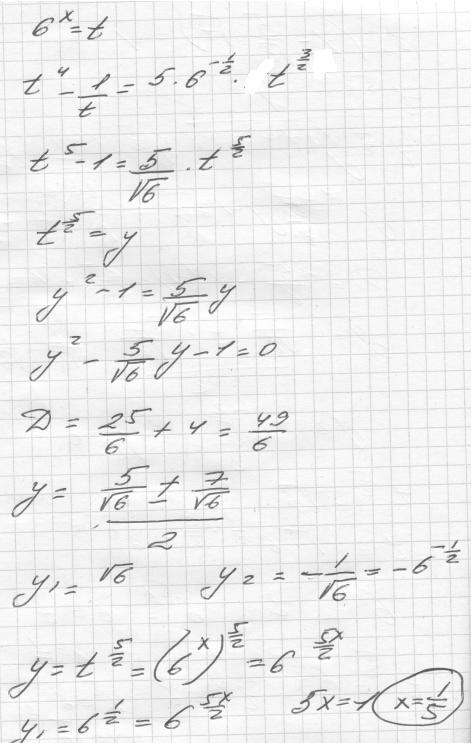 6^x = t
t^4 - 1/t = 5 · 6^(-1/2) · t^(3/2)
t^5 - 1 = 5/√6 · t^(5/2)
t^(5/2) = y
y^2 - 1 = 5/√6 y
y^2 - 5/√6 y - 1 = 0
D = 25/6 + 4 = 49/6
y = (5/√6 ± 7/√6)/2
y₁ = √6 y₂ = -1/√6 = -6^(-1/2)
y = t^(5/2) = (6^x)^(5/2) = 6^(5x/2)
y₁ = 6^(1/2) = 6^(5x/2) 5x = 1 x = 1/5